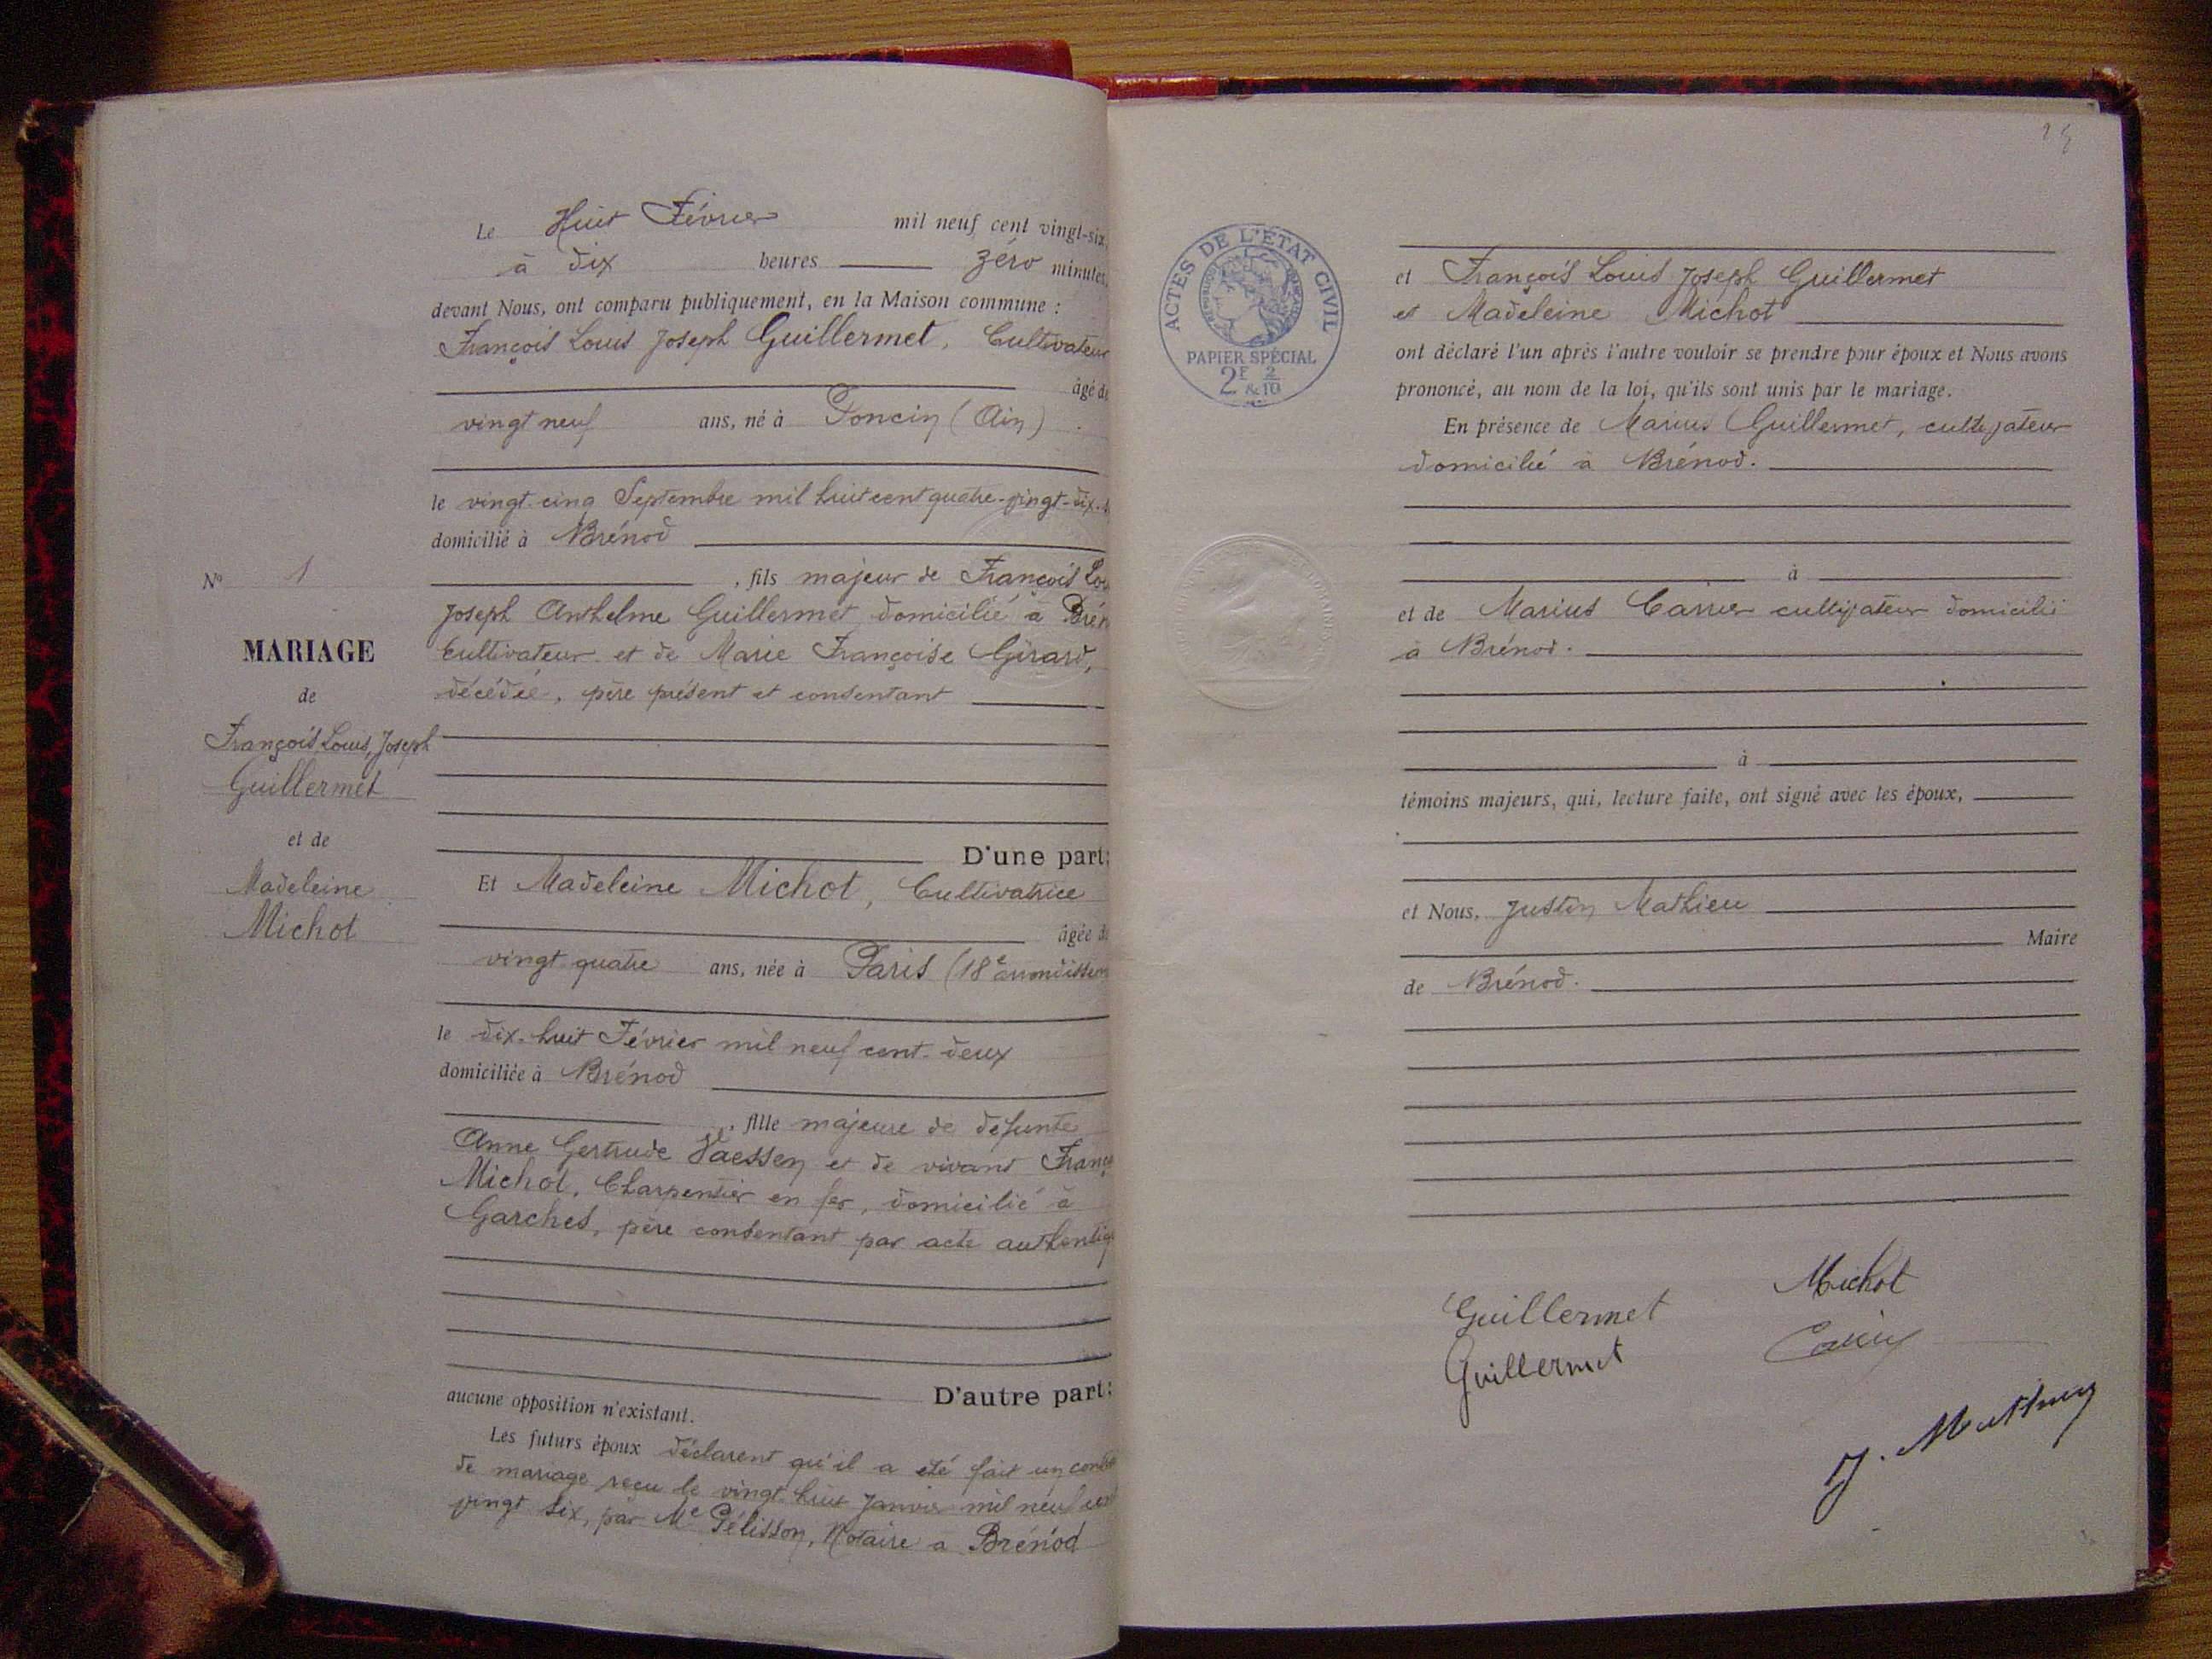 Le Huit Février mil neuf cent vingt-six,
à dix heures zéro minutes,
devant Nous, ont comparu publiquement, en la Maison commune :
François Louis Joseph Guillermet, Cultivateur
âgé de
vingt neuf ans, né à Poncin (Ain)
le vingt-cinq Septembre mil huit cent quatre-vingt-dix-
domicilié à Brénod
, fils majeur de François Lou
Joseph Anthelme Guillermet domicilié à Brén
Cultivateur et de Marie Françoise Girard,
décédée, père présent et consentant
D'une part;
Et Madeleine Michot, Cultivatrice
âgée de
vingt quatre ans, née à Paris (18e arrondissem
le dix-huit Février mil neuf cent-deux
domiciliée à Brénod
, fille majeure de défunte
Anne Gertrude Vaessen et de vivant Franç
Michot, Charpentier en fer, domicilié à
Garches, père consentant par acte authentiq
D'autre part;
aucune opposition n'existant.
Les futurs époux déclarent qu'il a été fait un contr
de mariage reçu le vingt-huit Janvier mil neuf cent
vingt six, par Me Pélisson, Notaire à Brénod
No 1
MARIAGE
de
François Louis, Joseph
Guillermet
et de
Madeleine
Michot
ACTES DE L'ÉTAT CIVIL
PAPIER SPÉCIAL
2F 2/10
et François Louis Joseph Guillermet
et Madeleine Michot
ont déclaré l'un après l'autre vouloir se prendre pour époux et Nous avons
prononcé, au nom de la loi, qu'ils sont unis par le mariage.
En présence de Marius Guillermet, cultivateur
domicilié à Brénod.
à
et de Marius Carrier cultivateur domicilié
à Brénod.
à
témoins majeurs, qui, lecture faite, ont signé avec les époux,
et Nous, Justin Mathieu
Maire
de Brénod.
Michot
Guillermet
Guillermet
J. Mathieu